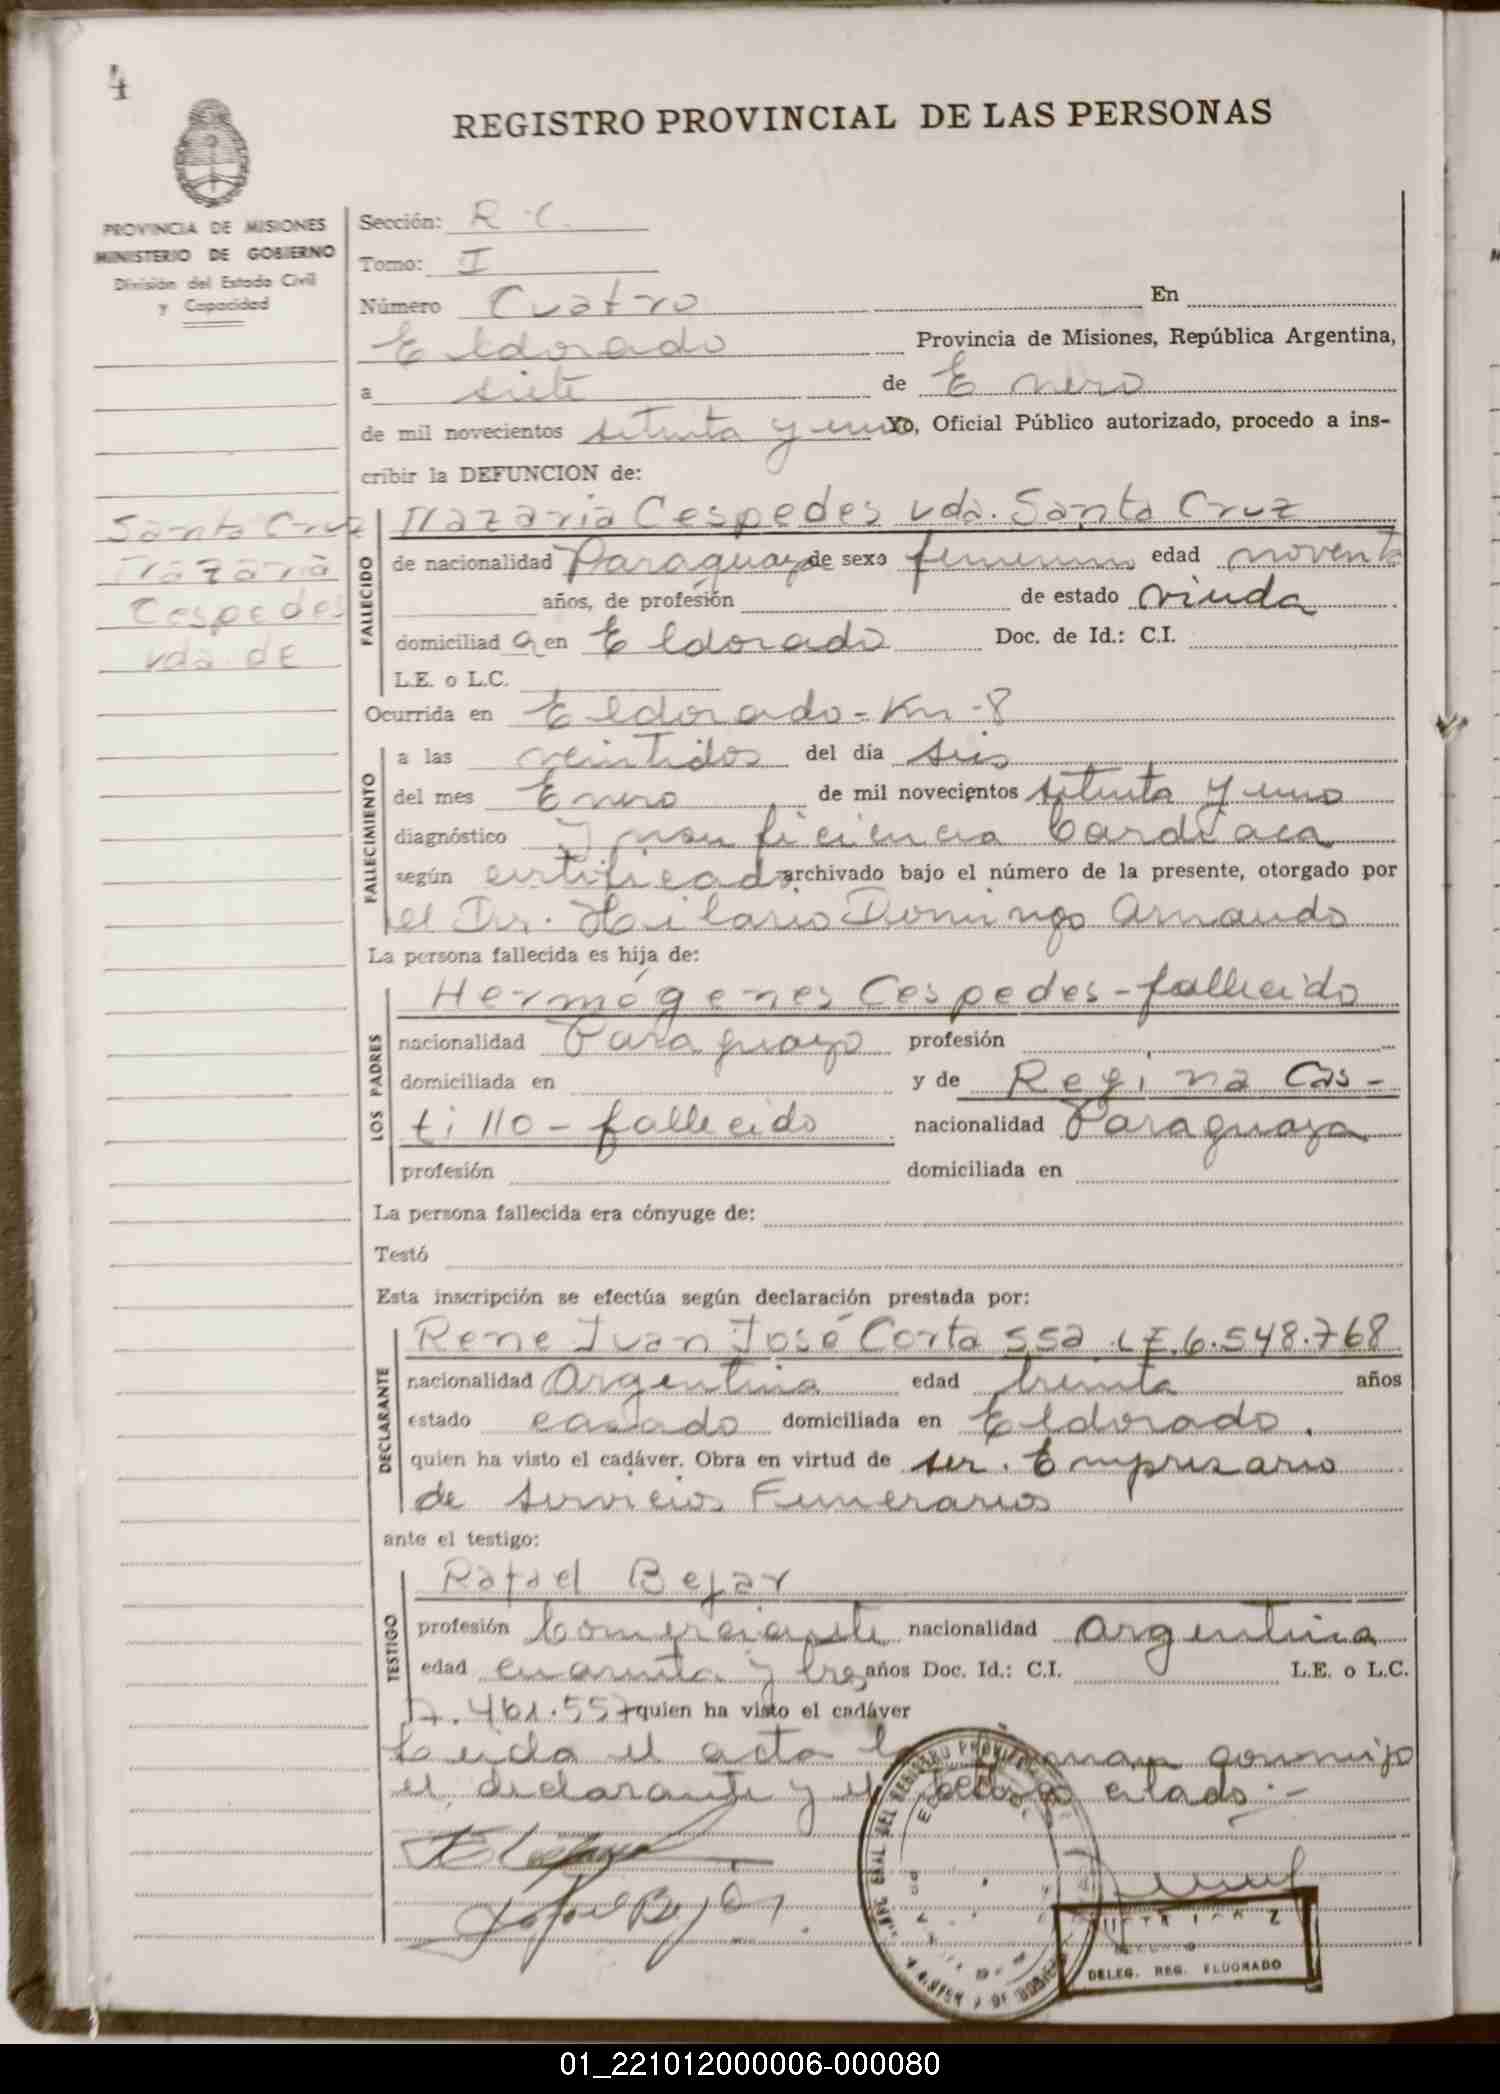 4
REGISTRO PROVINCIAL DE LAS PERSONAS
PROVINCIA DE MISIONES
MINISTERIO DE GOBIERNO
División del Estado Civil
y Capacidad
Sección: R.C.
Tomo: I
Número Cuatro En
Eldorado Provincia de Misiones, República Argentina,
a siete de Enero
de mil novecientos setenta y uno Yo, Oficial Público autorizado, procedo a ins-
cribir la DEFUNCION de:
Santa Cruz
Nazaria
Cespedes
vda. de
FALLECIDO
Nazaria Cespedes vda. Santa Cruz
de nacionalidad Paraguaya de sexo femenino edad noventa
años, de profesión de estado viuda
domiciliad a en Eldorado Doc. de Id.: C.I.
L.E. o L.C.
Ocurrida en Eldorado - Km - 8
FALLECIMIENTO
a las veintidos del día seis
del mes Enero de mil novecientos setenta y uno
diagnóstico Insuficiencia Cardíaca
según certificado archivado bajo el número de la presente, otorgado por
el Dr. Hilario Domingo Amando
La persona fallecida es hija de:
LOS PADRES
Hermógenes Cespedes - fallecido
nacionalidad Paraguayo profesión
domiciliada en y de Regina Cas-
tillo - fallecido nacionalidad Paraguaya
profesión domiciliada en
La persona fallecida era cónyuge de:
Testó
Esta inscripción se efectúa según declaración prestada por:
DECLARANTE
Rene Juan José Cortassa LE. 6.548.768
nacionalidad Argentina edad treinta años
estado casado domiciliada en Eldorado.
quien ha visto el cadáver. Obra en virtud de ser. Empresario
de Servicios Funerarios
ante el testigo:
TESTIGO
Rafael Bejar
profesión Comerciante nacionalidad Argentina
edad cuarenta y tres años Doc. Id.: C.I. L.E. o L.C.
7.461.557 quien ha visto el cadáver
Leida el acta la firman conmigo
el declarante y el testigo citado.-
Rafael Bejar
DELEG. REG. ELDORADO
01_221012000006-000080